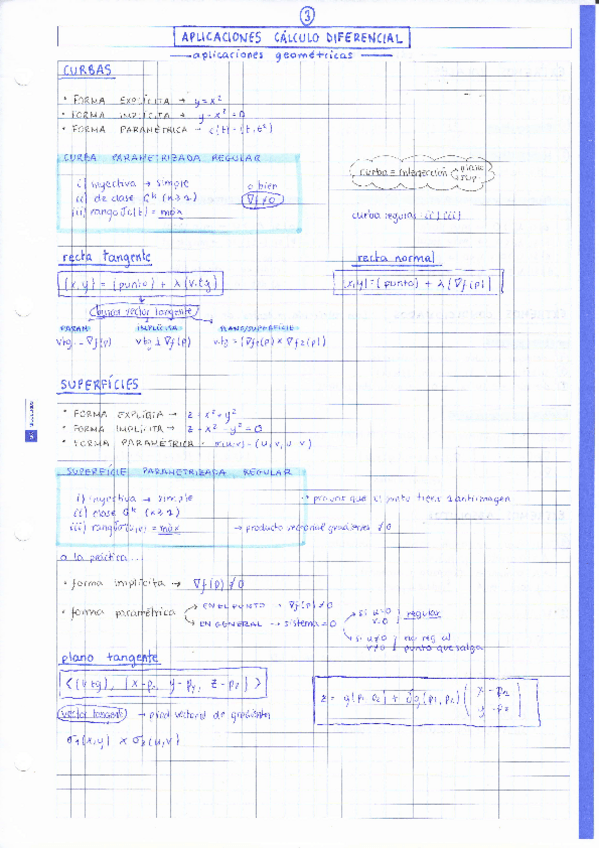 3
APLICACIONES CÁLCULO DIFERENCIAL
aplicaciones geométricas
CURBAS
• FORMA EXPLÍCITA → y=x²
• FORMA IMPLÍCITA → y-x²=0
• FORMA PARAMÉTRICA → c(t)=(t,t²)
CURBA PARAMETRIZADA REGULAR
i) inyectiva → simple
ii) de clase Cᵏ (k≥1)
iii) rango Jc(t) = max
o bien
∇f≠0
curba = intersección
curba regular i) ii) iii)
recta tangente
(x,y) = (punto) + λ(v.tg)
buscar vector tangente
PARAM
vtg = ∇f(p)
IMPLÍCITA
vtg ⊥ ∇f(p)
PLANO/SUPERFÍCIE
vtg = (∇f1(p) × ∇f2(p))
recta normal
(x,y)=(punto) + λ(∇f(p))
SUPERFÍCIES
• FORMA EXPLÍCITA → z = x²+y²
• FORMA IMPLÍCITA → z-x²-y²=0
• FORMA PARAMÉTRICA
SUPERFÍCIE PARAMETRIZADA REGULAR
i) inyectiva → simple → provar que el punto tiene 1 antiimagen
ii) clase Cᵏ (k≥1)
iii) rango Jσ(u,v) = max → producto vectorial gradientes ≠0
a la práctica...
• forma implícita → ∇f(p)≠0
• forma paramétrica
EN EL PUNTO → ∇f(p)≠0
EN GENERAL → sistema=0
si u=0
v=0
regular
si u≠0
v≠0
no reg al
punto que salga
plano tangente
<(vtg), (x-p₁, y-p₂, z-p₃)>
vector tangente → prod vectorial de gradientes